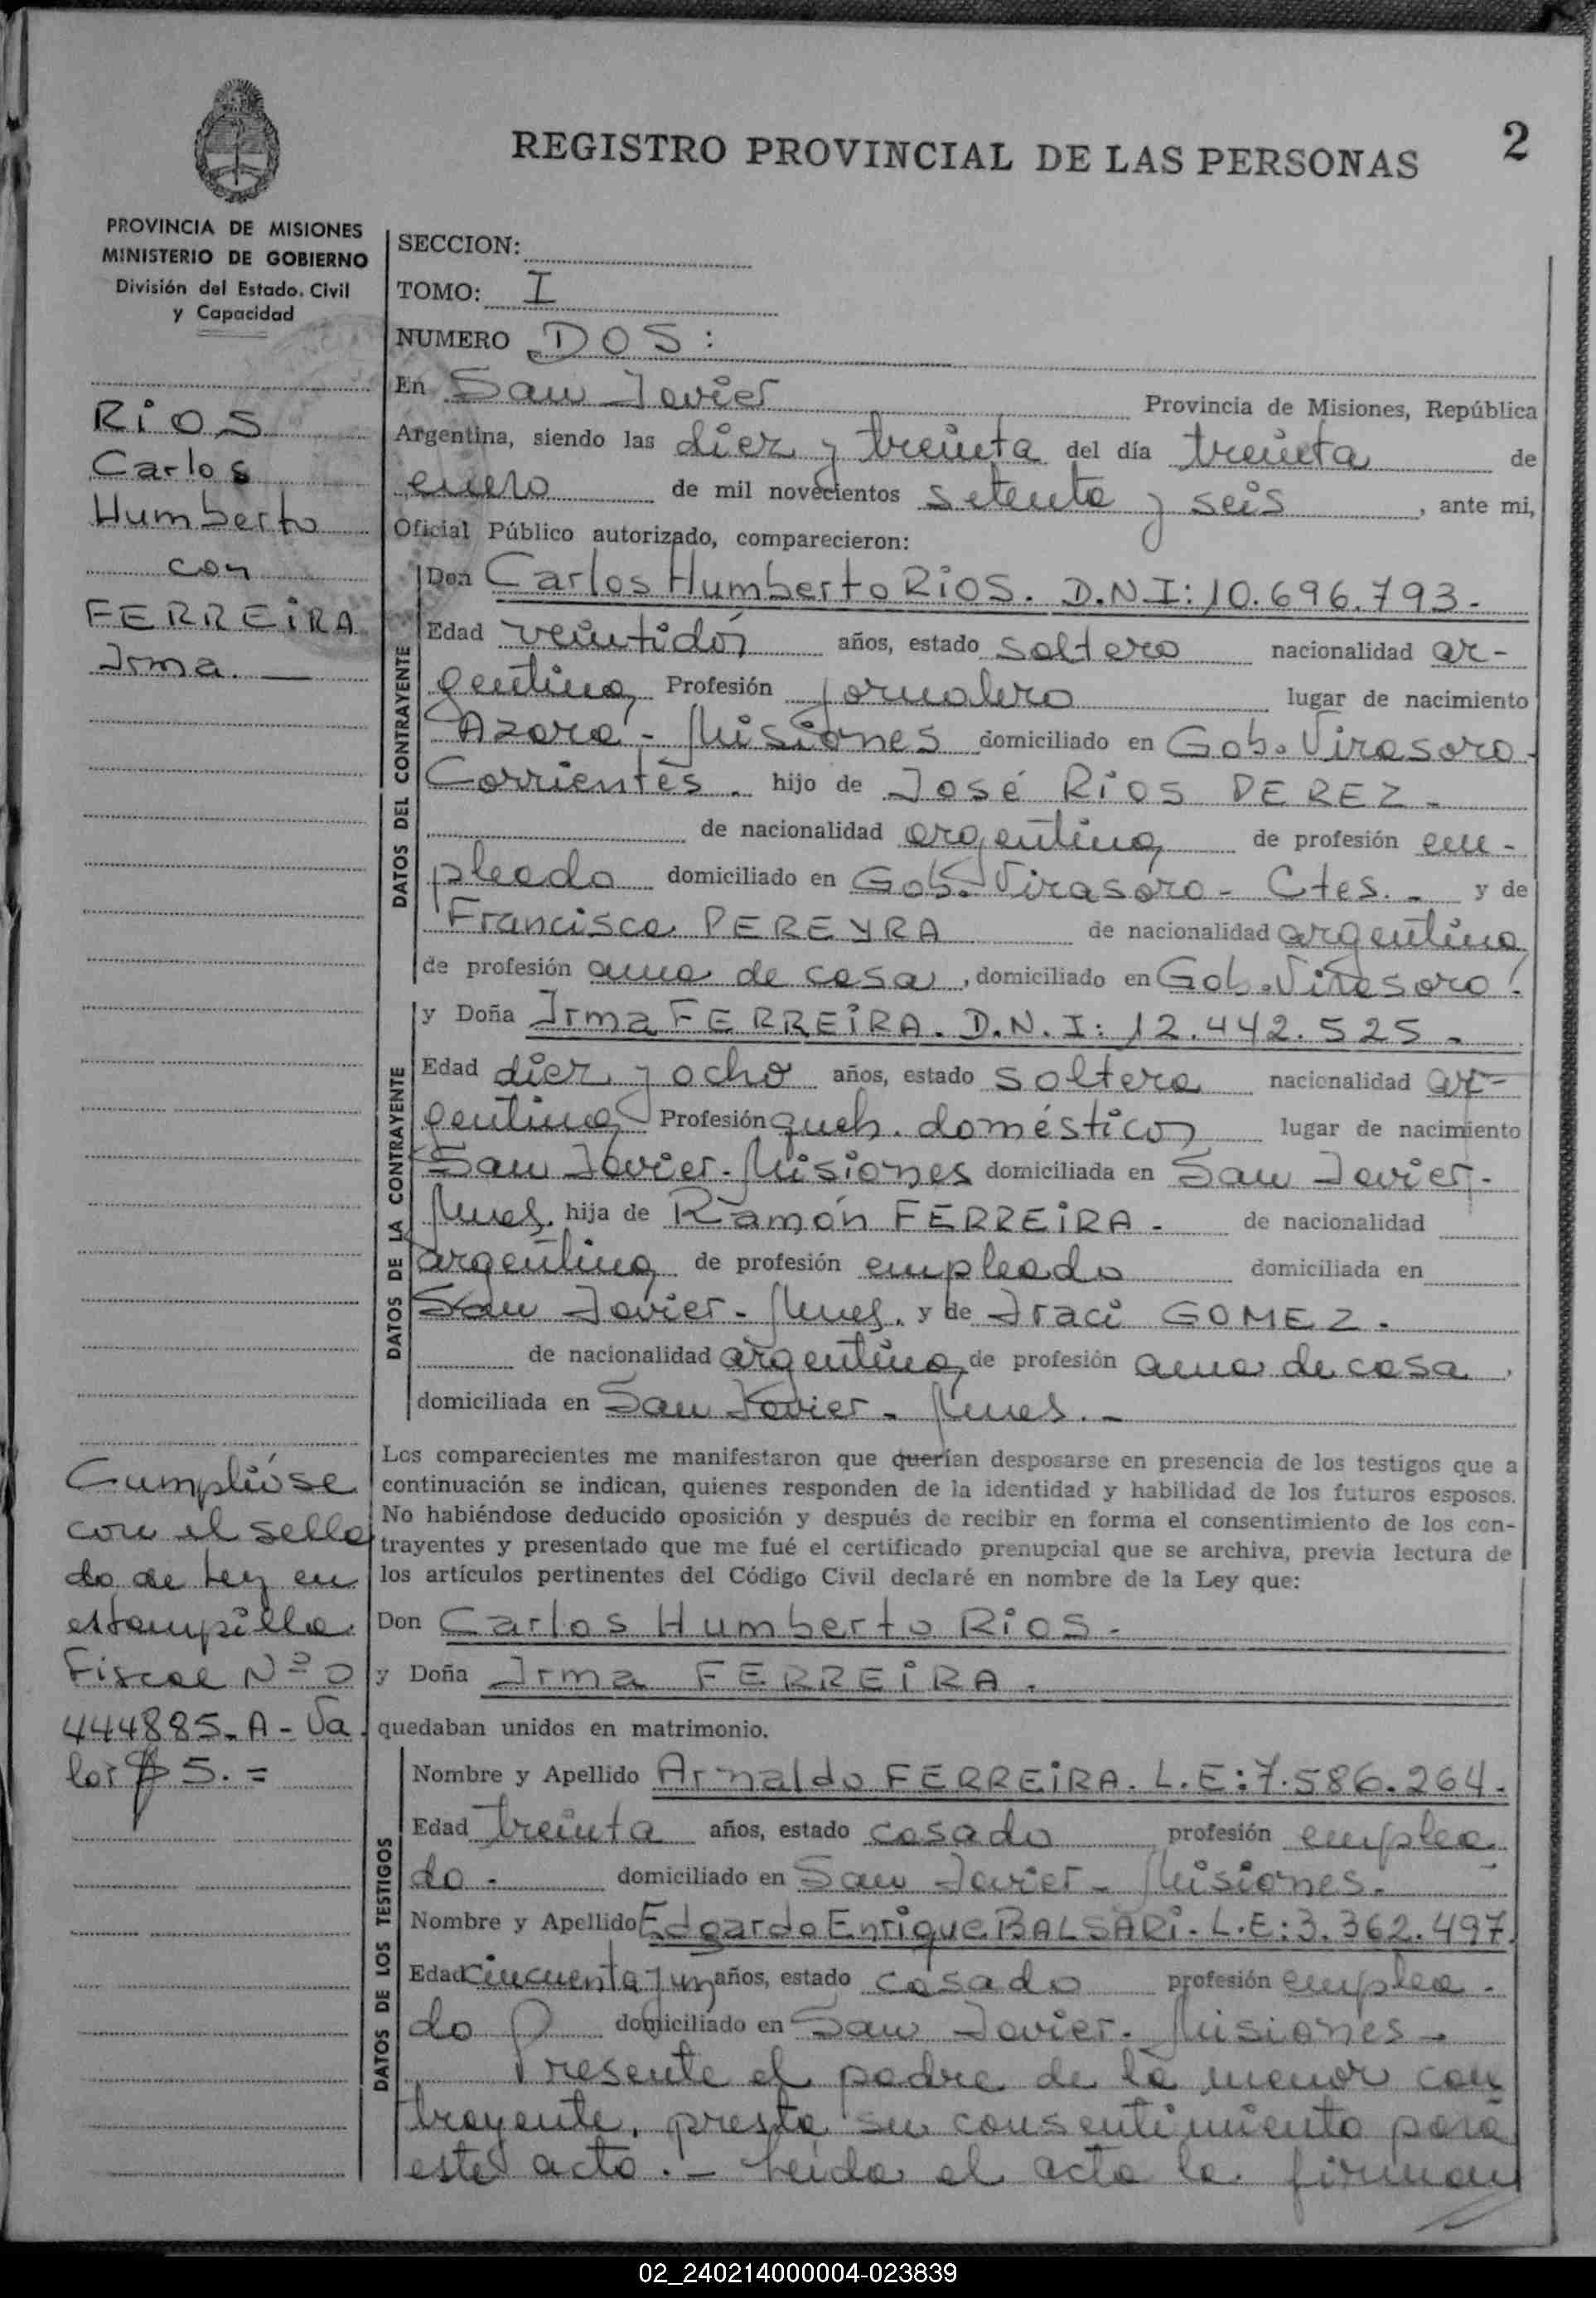 REGISTRO PROVINCIAL DE LAS PERSONAS
2
PROVINCIA DE MISIONES
MINISTERIO DE GOBIERNO
División del Estado Civil
y Capacidad
RiOS
Carlos
Humberto
con
FERREiRA
Irma. —
Cumplióse
con el sella
do de Ley en
estampilla
Fiscal Nº 0
444885-A-Va
lor $ 5.=
SECCION:
TOMO: I
NUMERO DOS:
En San Javier Provincia de Misiones, República
Argentina, siendo las diez y treinta del día treinta de
enero de mil novecientos setenta y seis, ante mi,
Oficial Público autorizado, comparecieron:
DATOS DEL CONTRAYENTE
Don Carlos Humberto RiOS. D.N.I: 10.696.793.-
Edad veintidós años, estado soltero nacionalidad ar-
gentina Profesión jornalero lugar de nacimiento
Azara - Misiones domiciliado en Gob. Virasoro-
Corrientes. hijo de José RiOS PEREZ -
de nacionalidad argentina de profesión em-
pleado domiciliado en Gob. Virasoro - Ctes. - y de
Francisca PEREYRA de nacionalidad argentina
de profesión ama de casa, domiciliado en Gob. Virasoro.
DATOS DE LA CONTRAYENTE
y Doña Irma FERREiRA. D.N.I: 12.442.525 -
Edad diez y ocho años, estado soltera nacionalidad ar-
gentina Profesión queh. domésticos lugar de nacimiento
San Javier-Misiones domiciliada en San Javier-
Mnes. hija de Ramón FERREiRA - de nacionalidad
argentina de profesión empleado domiciliada en
San Javier - Mnes. y de Iraci GOMEZ.
de nacionalidad argentina de profesión ama de casa,
domiciliada en San Javier - Mnes. -
Los comparecientes me manifestaron que querían desposarse en presencia de los testigos que a
continuación se indican, quienes responden de la identidad y habilidad de los futuros esposos.
No habiéndose deducido oposición y después de recibir en forma el consentimiento de los con-
trayentes y presentado que me fué el certificado prenupcial que se archiva, previa lectura de
los artículos pertinentes del Código Civil declaré en nombre de la Ley que:
Don Carlos Humberto RiOS.-
y Doña Irma FERREiRA.
quedaban unidos en matrimonio.
DATOS DE LOS TESTIGOS
Nombre y Apellido Arnaldo FERREiRA. L.E: 7.586.264.
Edad treinta años, estado casado profesión emplea
do - domiciliado en San Javier - Misiones.-
Nombre y Apellido Edgardo Enrique BALSARi. L.E: 3.362.497.
Edad cincuenta y un años, estado casado profesión emplea-
do domiciliado en San Javier. Misiones -
Presente el padre de la menor con
trayente, presta su consentimiento para
este acto. - Leida el acta la firman
02_240214000004-023839